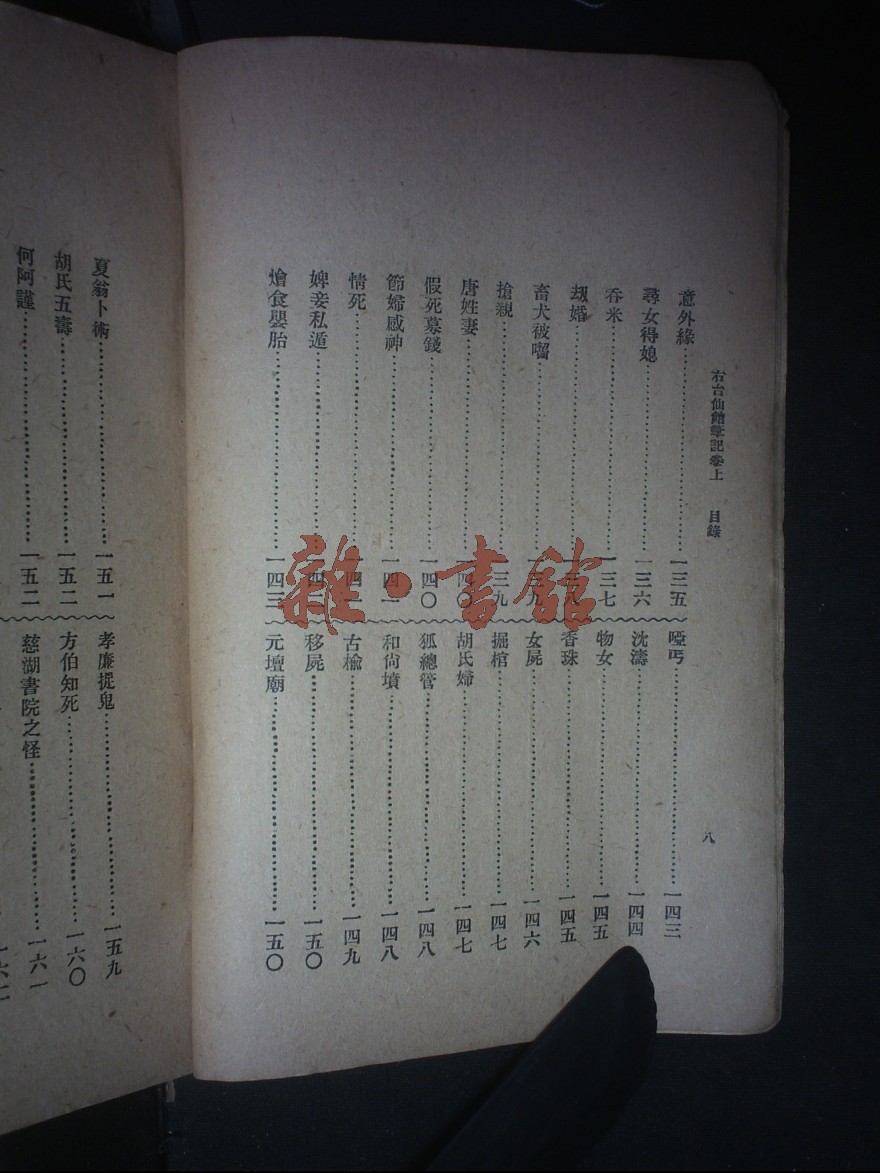 右台仙館筆記卷上 目錄 八
意外緣……一三五
尋女得媳……一三六
吞米……一三七
劫婚……一三八
畜犬被囓……一三九
搶親……一三九
唐姓妻……一四〇
假死募錢……一四〇
節婦感神……一四一
情死……一四一
婢妾私遁……一四二
燴食嬰胎……一四三
啞丐……一四三
沈濤……一四四
物女……一四五
香珠……一四五
女屍……一四六
掘棺……一四七
胡氏婦……一四七
狐總管……一四八
和尚墳……一四八
古楡……一四九
移屍……一五〇
元壇廟……一五〇
夏翁卜術……一五一
胡氏五壽……一五二
何阿謹……一五二
孝廉捉鬼……一五九
方伯知死……一六〇
慈湖書院之怪……一六一
雜·書館